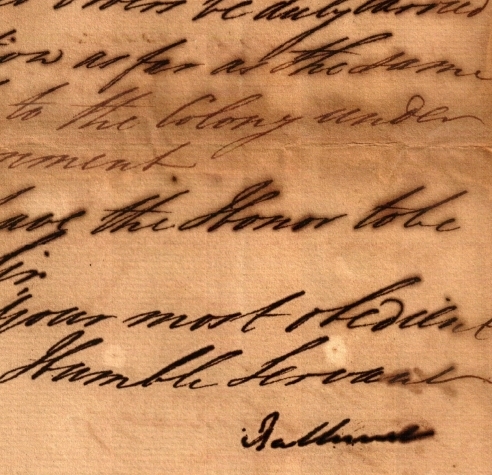 be duly carried
as far as the same
to the Colony under
nment
have the Honor to be
Sir
Your most obedient
Humble Servant